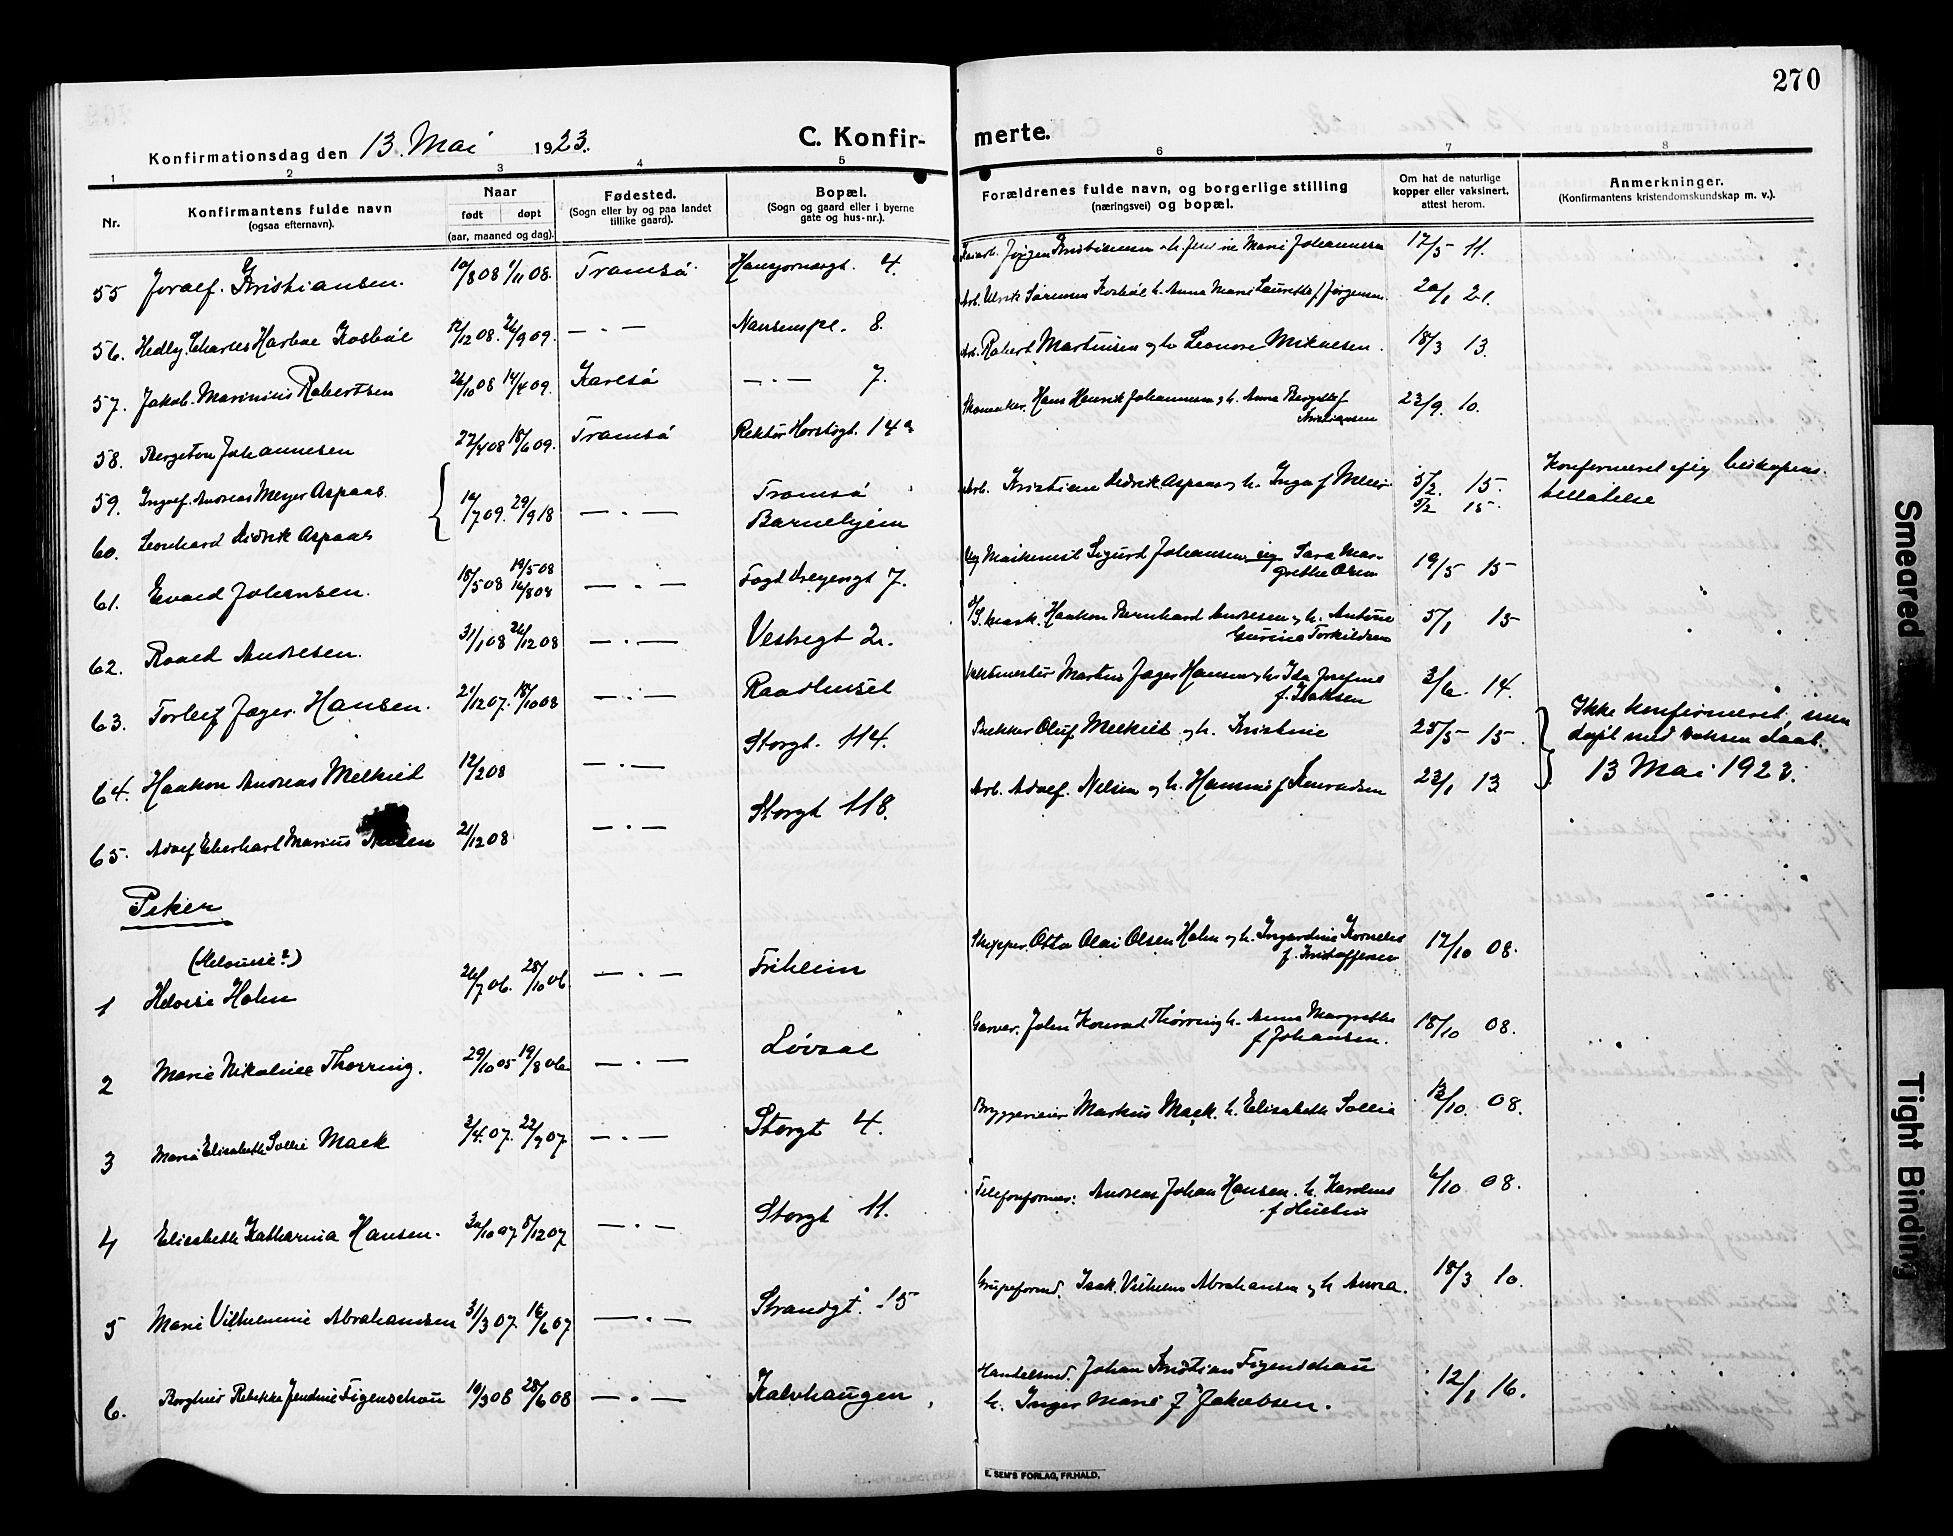 270
Konfirmationsdag den 13. Mai 1923.
C. Konfir-
merte.
1 2 3 4 5 6 7 8
Nr.
Konfirmantens fulde navn
(ogsaa efternavn).
Naar
født døpt
(aar, maaned og dag).
Fødested.
(Sogn eller by og paa landet
tillike gaard).
Bopæl.
(Sogn og gaard eller i byerne
gate og hus-nr.).
Forældrenes fulde navn, og borgerlige stilling
(næringsvei) og bopæl.
Om hat de naturlige
kopper eller vaksinert,
attest herom.
Anmerkninger.
(Konfirmantens kristendomskundskap m. v.).
55 Joralf. Kristiansen. 10/8 08 1/11 08. Tromsø 4. Jørgen Kristiansen Marie Johannesen 17/5 11.
56. Hedly. Charles Harboe Kosbøl 12/12 08. 26/9 09. — . — Nansenspl. 8. Arb. Ulrik Sørensen Kosbøl h. Anna Marie Laurette f. Jørgensen. 20/1 21.
57. Jakob. Marinius Robertsen 26/10 08 14/4 09. Karlsø — . — 7. Arb. Robert Martinsen og h. Leonore Mikalsen. 18/3 13.
58. Bergeton Johannesen 27/4 08 18/6 09. Tromsø Rektor Horstsgt. 14a Skomaker. Hans Henrik Johannesen og h. Anna Bergitte f
Kristiansen 23/9. 10.
59. Ingolf. Andreas Meyer Aspaas. 10/7 09. 29/9 18 — . — Tromsø
Barnehjem Arb. Kristian Didrik Aspaas og h. Inga f Meier 5/2. 15. Konfirmeret efter biskopens
tillatelse
60. Leonhard Didrik Aspaas 5/2 15.
61. Evald Johansen. 18/5 08 19/5 08
16/8 08 — . — Fogd Dreyersgt 7. Maskinist Sigurd Johansen og Sara Mar-
grethe Olsen 19/5 15
62. Roald Andresen. 31/1 08 26/12 08 — . — Vestregt 2. Haakon Bernhard Andresen og h. Antone
Gurine Torkildsen 5/1 15
63. Torleif Jæger. Hansen. 21/12 07. 18/10 08 — . — Raadhuset Vaktmester Martin Jæger Hansen og h. Ida Josefine
f. Isaksen 3/6. 14.
64. Haakon Andreas Melkild 12/2 08 — . — Storgt. 114. Oluf Melkild og h. Kristine 25/5 15. Ikke konfirmeret, men
døpt med voksen daab.
13 Mai 1923.
65. Adolf Eberhart Marius Nilsen 21/12 08 — . — Storgt 118. Arb. Adolf. Nilsen og h. Hansine f Konradsen 23/1 13
Piker
(Helouise?)
1 Heloise Holm 26/7 06. 28/10 06 — . — Friheim Skipper. Otto Olai Olsen Holm og h. Ingardine Kornelia
f. Kristoffersen 17/10 08.
2 Marie Nikoline Thorring. 29/10 05 19/8 06 — . — Løvaal Garver. John Konrad Thorring h. Anna Margrethe
f Johansen. 18/10 08.
3 Maria Elisabeth Sollie Mack 3/4. 07. 22/9 07 — . — Storgt 4. Bryggerieier Markus Mack. h. Elisabeth Sollie 13/10 08.
4 Elisabeth Katharina Hansen. 30/10 07 8/12 07 — . — Storgt 11. Andreas Johan Hansen. h. Karoline 6/10 08.
5 Marie Vilhelmine Abrahamsen 31/3 07. 16/6 07 — . — Strandgt. 15 Isak. Vilhelm Abrahamsen og h Anna. 18/3 10.
6. Borghild Rebekke Jendine Figenschau 10/3 08 28/6 08 — . — Kalvhaugen Handelsmd. Johan Kristian Figenschau
h. Inger Marie f Jakobsen. 12/1 16.
E. SEM'S FORLAG, FR.HALD.
Smeared
Tight Binding